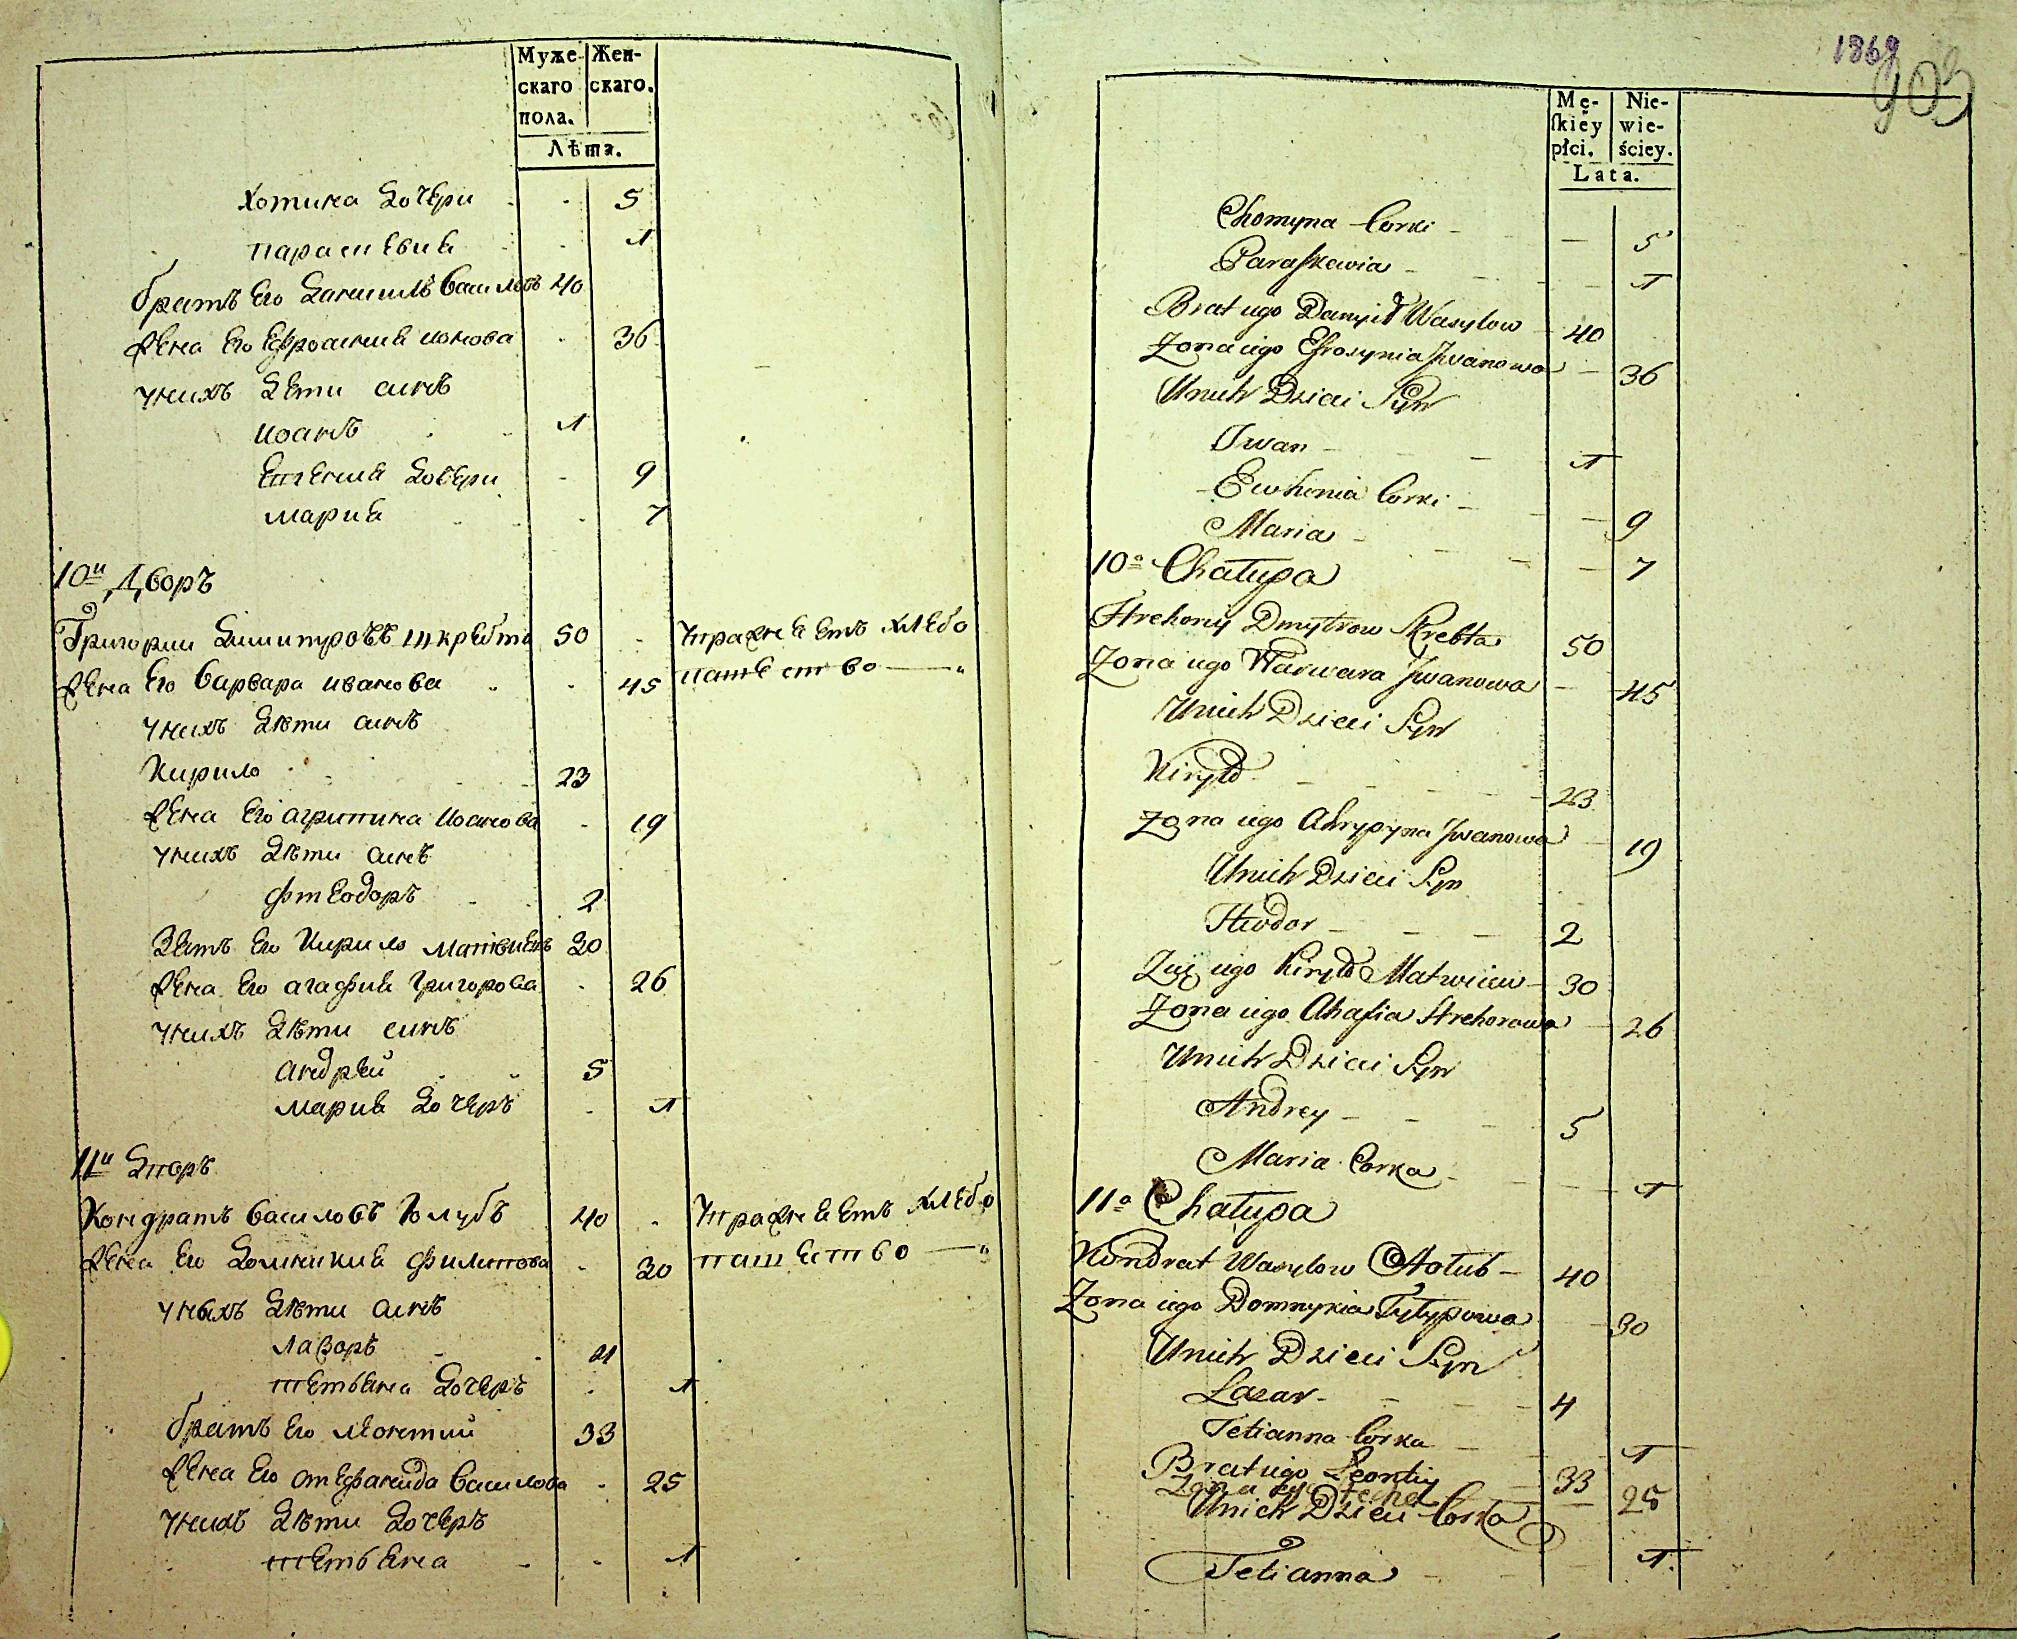 Муже-
скаго
пола.
Жен-
скаго.
Лѣта.
Хотина дочери 5
параскевия 1
братъ Его Даниилъ Василовъ 40
жена Его Ефросиния ионова 36
унихъ дѣти синъ
иоанъ 1
Евгения дочери 9
мария 7
10й дворъ
Григории Димитровъ шкребта 50 упражняетъ хлѣбо
жена Его варвара иванова 45 пашество —
унихъ дѣти синъ
Кирило 23
жена Его агрипина иоанова 19
унихъ дѣти синъ
фтеодоръ 2
зять Его Кирило матвиевъ 30
жена Его агафия григорова 26
унихъ дѣти синъ
андрей 5
мария дочеръ 1
11й дворъ
Кондратъ василовъ голубъ 40 упражняетъ хлѣбо
жена Его домникия филипова 30 пашество —
унихъ дѣти синъ
лазоръ 4
тетьяна дочеръ 1
братъ Его леонтий 33
жена Его стефанида василова 25
унихъ дѣти дочеръ
тетьяна 1
1869
903
Mę-
ſkiey
płci.
Nie-
wie-
ściey.
Lata.
Chomyna Corki 5
Paraſkewia 1
Brat iego Danyił Wasylow 40
Zona iego Efrosynia Jwanowa 36
Unich Dzieci Syn
Jwan 1
Ewhenia Corki 9
Maria 7
10a Chałupa
Hrehory Dmytrow Skrebta 50
Zona iego Warwara Jwanowa 45
Unich Dzieci Syn
Kiryło 23
Zona iego Ahrypyna Jwanowa 19
Unich Dzieci Syn
Theodor 2
Zięć iego Kiryło Matwiiew 30
Zona iego Ahafia Hrehorowa 26
Unich Dzieci Syn
Andrey 5
Maria Corka 1
11a Chałupa
Kondrat Wasylow Hołub 40
Zona iego Domnykia Fylypowa 30
Unich Dzieci Syn
Lazar 4
Tetianna Corka 1
Brat iego Leontiy 33
Zona iego 25
Unich Dzieci Corka
Tetianna 1